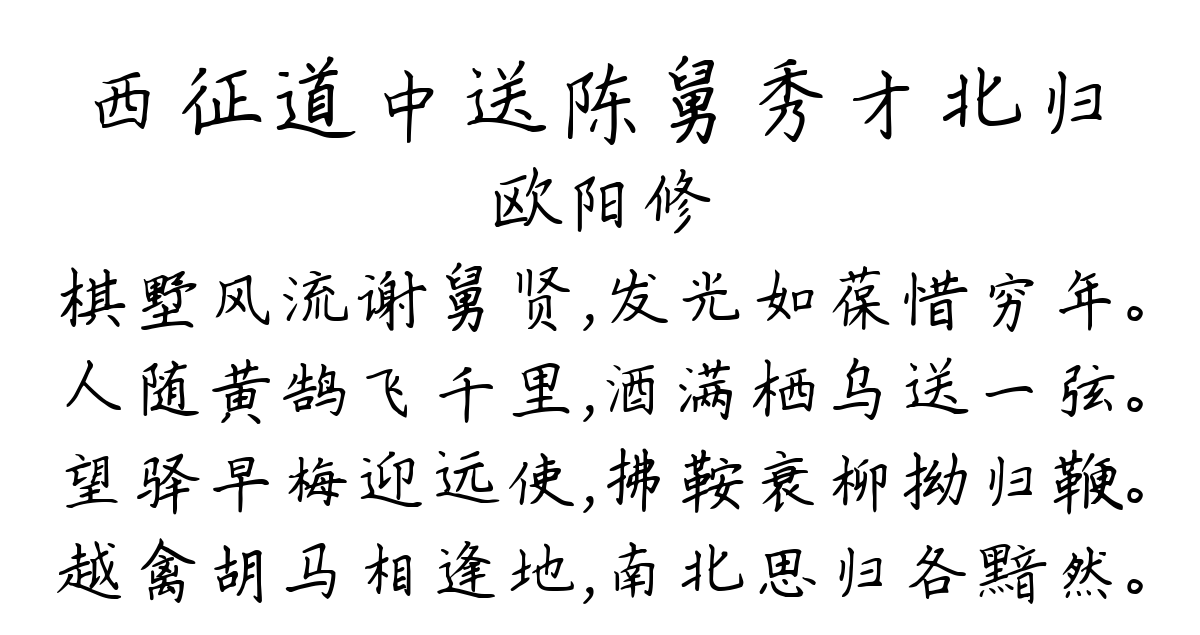 西征道中送陈舅秀才北归
欧阳修
棋墅风流谢舅贤,发光如葆惜穷年。
人随黄鹄飞千里,酒满栖乌送一弦。
望驿早梅迎远使,拂鞍衰柳拗归鞭。
越禽胡马相逢地,南北思归各黯然。